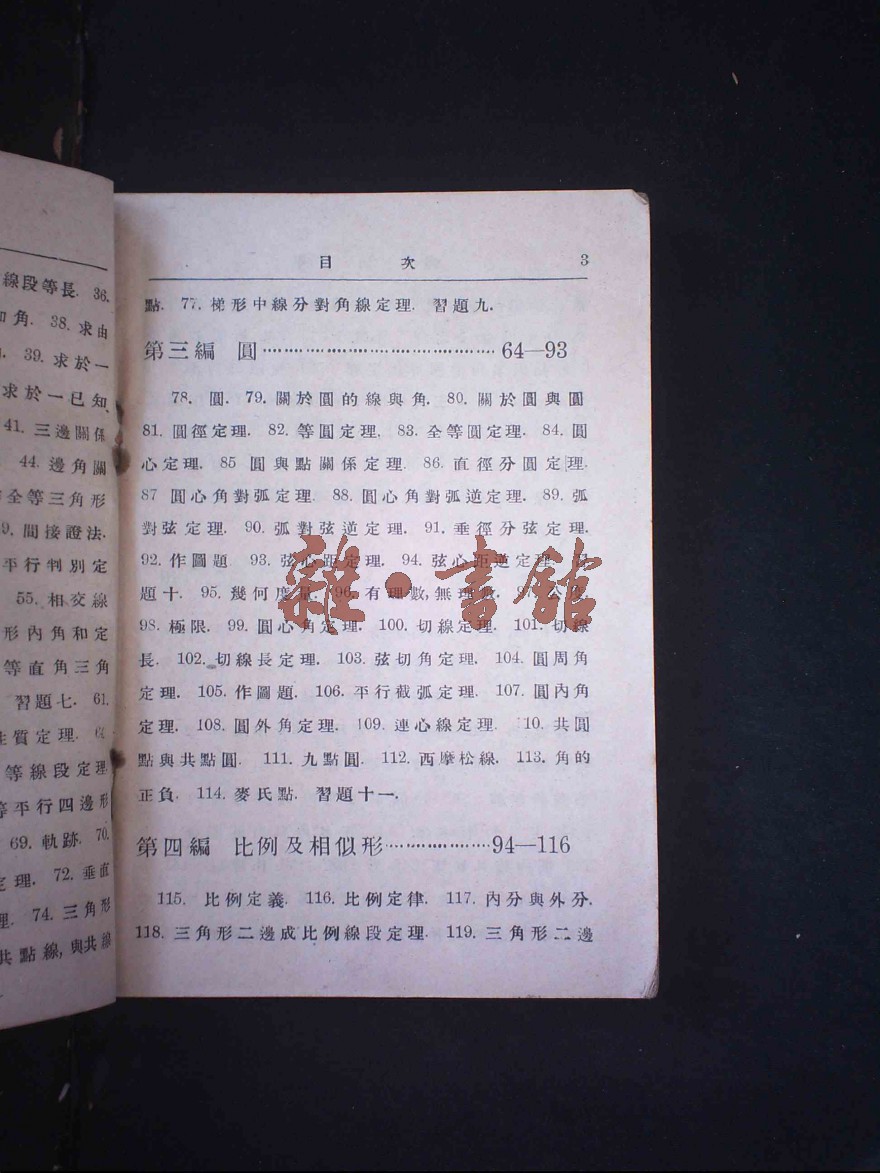 線段等長. 36.
和角. 38. 求由
39. 求於一
求於一已知
41. 三邊關係
44. 邊角關
全等三角形
9. 間接證法.
平行判別定
55. 相交線
形內角和定
等直角三角
習題七. 61.
性質定理.
等線段定理
等平行四邊形
69. 軌跡. 70.
定理. 72. 垂直
理. 74. 三角形
共點線,與共線
目 次 3
點. 77. 梯形中線分對角線定理. 習題九.
第三編 圓 64—93
78. 圓. 79. 關於圓的線與角. 80. 關於圓與圓
81. 圓徑定理. 82. 等圓定理. 83. 全等圓定理. 84. 圓
心定理. 85 圓與點關係定理. 86. 直徑分圓定理.
87 圓心角對弧定理. 88. 圓心角對弧逆定理. 89. 弧
對弦定理. 90. 弧對弦逆定理. 91. 垂徑分弦定理.
92. 作圖題 93. 弦心距定理. 94. 弦心距逆定理 習
題十. 95. 幾何度量. 96. 有理數,無理數.
雜·書館
98. 極限. 99. 圓心角定理. 100. 切線定理. 101. 切線
長. 102. 切線長定理. 103. 弦切角定理. 104. 圓周角
定理. 105. 作圖題. 106. 平行截弧定理. 107. 圓內角
定理. 108. 圓外角定理. 109. 連心線定理. 110. 共圓
點與共點圓. 111. 九點圓. 112. 西摩松線. 113. 角的
正負. 114. 麥氏點. 習題十一.
第四編 比例及相似形 94—116
115. 比例定義. 116. 比例定律. 117. 內分與外分.
118. 三角形二邊成比例線段定理. 119. 三角形二邊